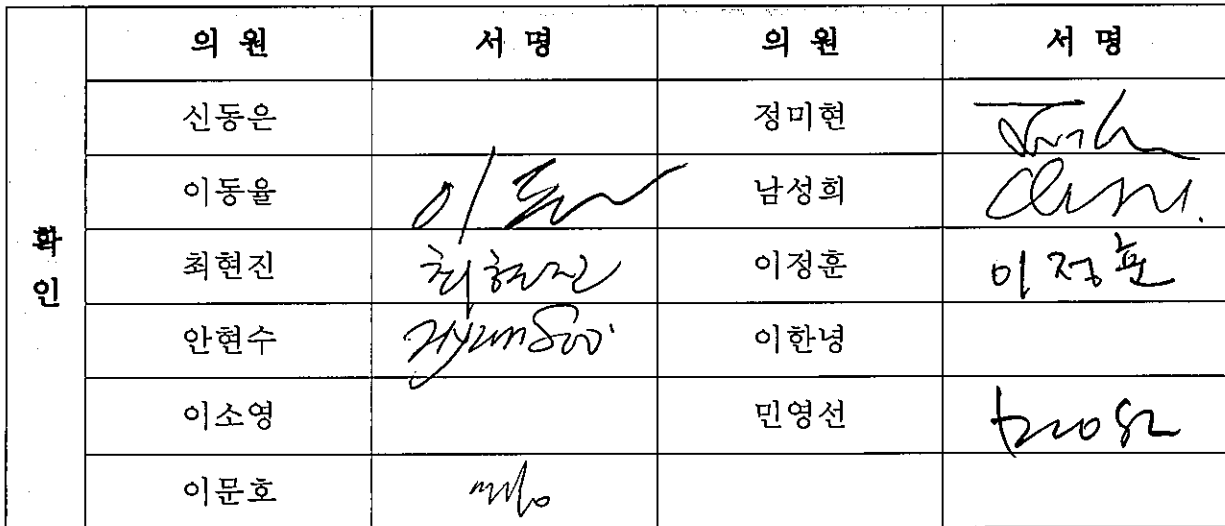 의 원 서 명 의 원 서 명
신동은 정미현
이동율 이동 남성희
확 최현진 최현진 이정훈 이정훈
인 안현수 HyunSoo 이한녕
이소영 민영선
이문호